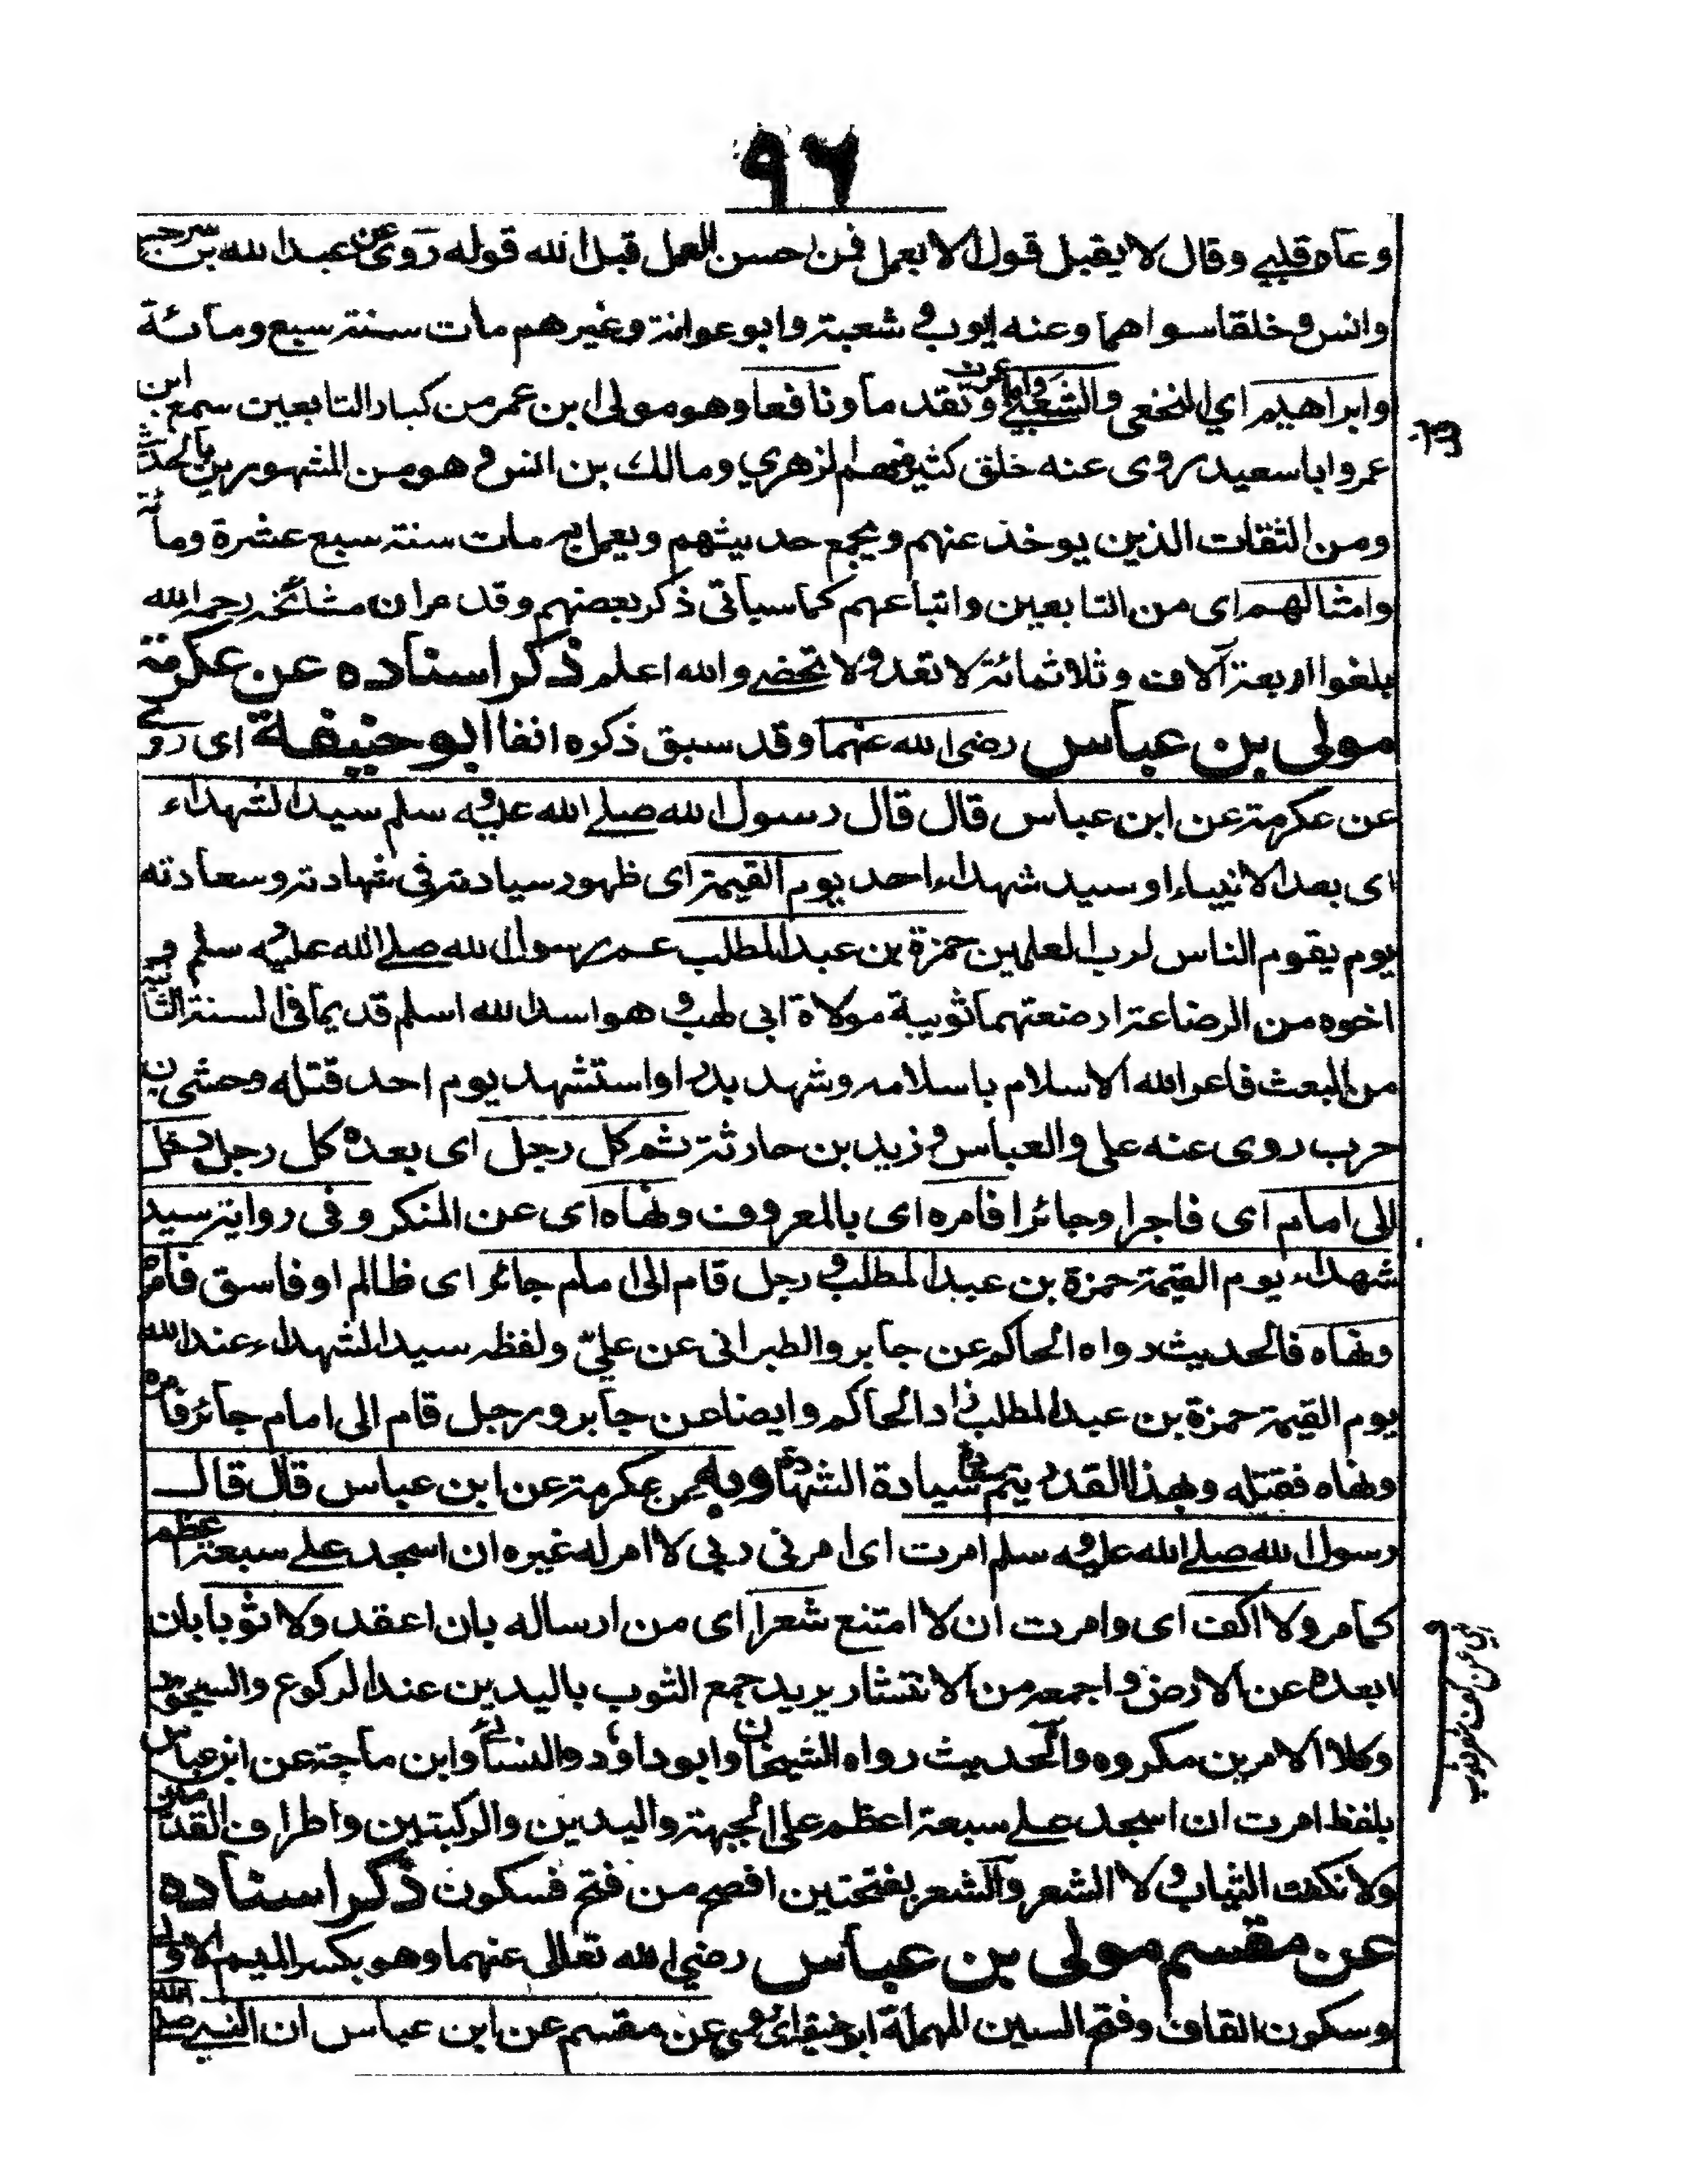 ٩٦
وعاه قلبى وقال لا يقبل قول الا بعمل فمن احسن العمل قبل الله قوله روى عن عبد الله بن سرجس
وانس وخلقا سواهما وعنه ايوب و شعبة وابو عوانة وغيرهم مات سنة سبع ومائة
وابراهيم اي النخعى والشعبى وتقدما ونافعا وهو مولى ابن عمر من كبار التابعين سمع ابن
عمر وابا سعيد روى عنه خلق كثير منهم الزهري ومالك بن انس و هو من المشهورين بالحديث
ومن الثقات الذين يوخذ عنهم ويجمع حديثهم ويعمل به مات سنة سبع عشرة ومائة
وامثالهم اى من التابعين واتباعهم كما سياتى ذكر بعضهم وقد مر ان مشائخه رحمه الله
بلغوا اربعة آلاف وثلاثمائة لا تعد ولا تحصى والله اعلم ذكر اسناده عن عكرمة
مولى بن عباس رضى الله عنهما وقد سبق ذكره انفا ابو حنيفة اى روى
عن عكرمة عن ابن عباس قال قال رسول الله صلى الله عليه و سلم سيد الشهداء
اى بعد الانبياء او سيد شهداء احد يوم القيمة اى ظهور سيادته فى شهادته وسعادته
يوم يقوم الناس لرب العلمين حمزة بن عبد المطلب عم رسول الله صلى الله عليه و سلم و
اخوه من الرضاعة ارضعتهما ثويبة مولاة ابى لهب و هو اسد الله اسلم قديما فى السنة الثانية
من البعث فاعز الله الاسلام باسلامه وشهد بدرا واستشهد يوم احد قتله وحشى بن
حرب روى عنه على والعباس و زيد بن حارثة ثم كل رجل اى بعده كل رجل دخل
الى امام اى فاجرا وجائرا فامره اى بالمعروف ونهاه اى عن المنكر وفى رواية سيد
شهداء يوم القيمة حمزة بن عبد المطلب و رجل قام الى امام جائر اى ظالم او فاسق فامره
ونهاه فالحديث رواه الحاكم عن جابر والطبرانى عن علىّ ولفظه سيد الشهداء عند الله
يوم القيمة حمزة بن عبد المطلب زاد الحاكم وايضا عن جابر ورجل قام الى امام جائز فامره
ونهاه فقتله وبهذا القدر يتم سيادة الشهادة وبه عن عكرمة عن ابن عباس قال قال
رسول الله صلى الله عليه و سلم امرت اى امرنى ربى لا امر له غيره ان اسجد على سبعة اعظم
كما مر ولا اكف اى وامرت ان لا امتنع شعرا اى من ارساله بان اعقد ولا ثوبا بان
ابعده عن الارض و اجمعه من الانتشار يريد جمع الثوب باليدين عند الركوع والسجود
وكلا الامرين مكروه والحديث رواه الشيخان وابو داؤد والنسائى وابن ماجة عن ابن عباس
بلفظ امرت ان اسجد على سبعة اعظم على الجبهة واليدين والركبتين واطراف القدمين
ولا نكفت الثياب و لا الشعر والشعر بفتحتين افصح من فتح فسكون ذكر اسناده
عن مقسم مولى بن عباس رضى الله تعالى عنهما وهو بكسر الميم الاولى
وسكون القاف وفتح السين المهملة ابو حنيفة اى روى عن مقسم عن ابن عباس ان النبى صلى الله